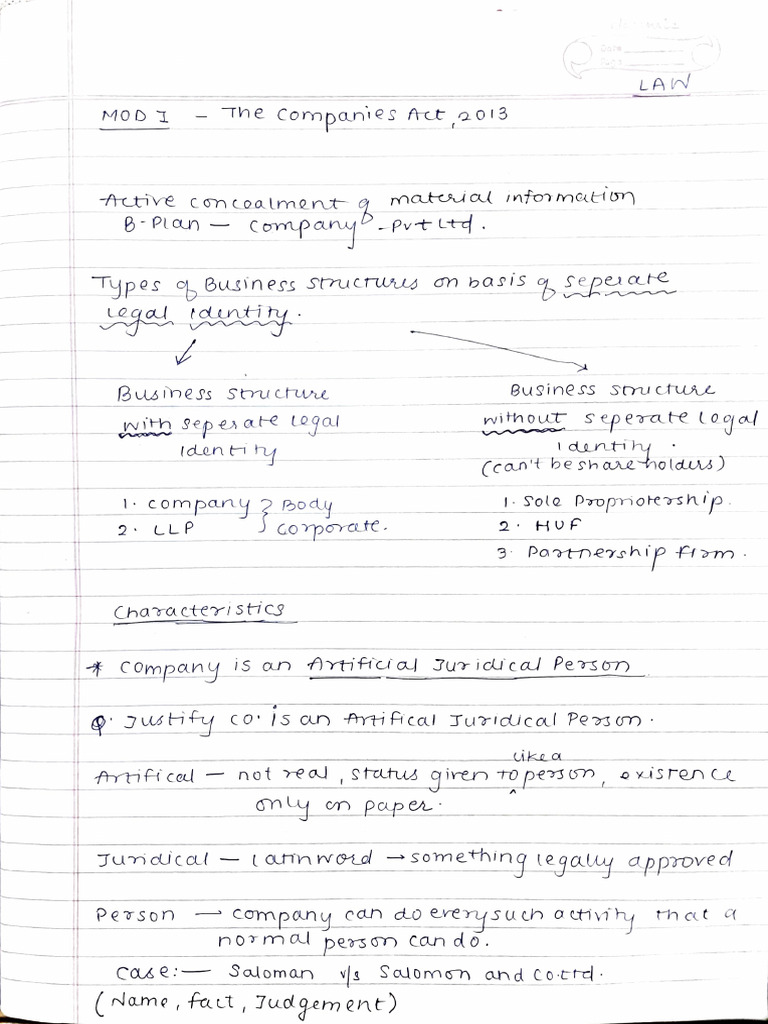 LAW
MOD I - The Companies Act, 2013
Active concealment of material information
B-Plan — company - Pvt Ltd.
Types of Business structures on basis of seperate
legal identity.
Business structure
with seperate legal
identity
Business structure
without seperate legal
identity.
(can't be share holders)
1. company } Body
2. LLP } corporate.
1. Sole Proprietership.
2. HUF
3. Partnership firm.
Characteristics
* company is an Artificial Juridical Person
Q. Justify co. is an Artifical Juridical Person.
like a
Artifical — not real, status given to ^ person, existence
only on paper.
Juridical — latin word → something legally approved
Person → company can do every such activity that a
normal person can do.
case:— Saloman v/s Salomon and Co. Ltd.
(Name, fact, Judgement)